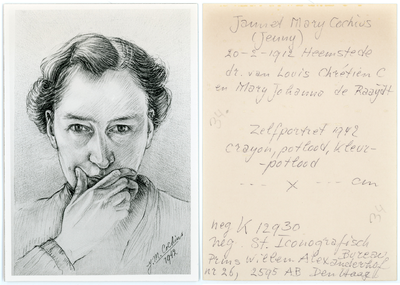 J.M. Cochius
1942
Jannet Mary Cochius
(Jenny)
20-1-1912 Heemstede
dr. van Louis Chrétien C
en Mary Johanna de Raaydt
Zelfportret 1942
crayon, potlood, kleur-
-potlood
--- x --- cm
neg K 12930
neg. St. Iconografisch
Bureau,
Prins Willem Alexanderhof
nr 26, 2595 AB Den Haag